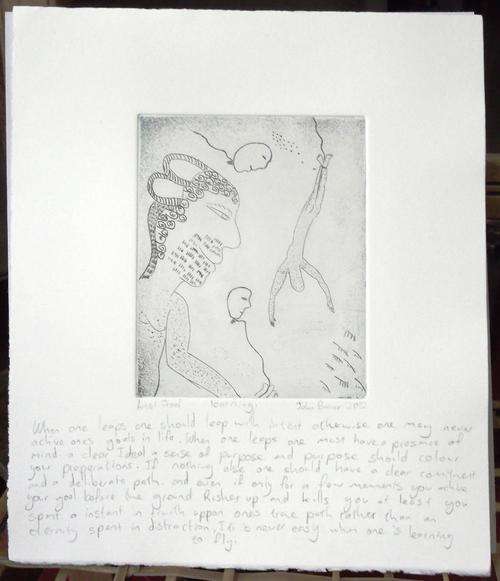 Artist Proof learning. John Bauer 2012
When one leaps one should leap with intent otherwise one may never
achive ones goals in life. When one leaps one most have a presence of
mind a clear Ideal a sense of purpose and purpose should colour
you preperations. If nothing else one should have a clear
and a deliberate path. and even if only for a few moments you achive
your goal before the ground Rushes up and kills you at least you
spent a instant in truith uppon ones trave path rather than an
eternity spent in distraction. It is never easy when one is learning
to fly.